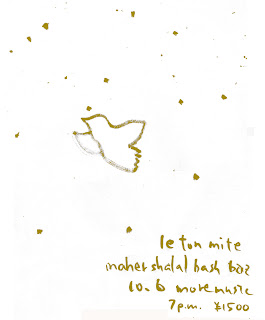 le ton mite
maher shalal hash baz
10.6 more music
7 p.m. ¥1500